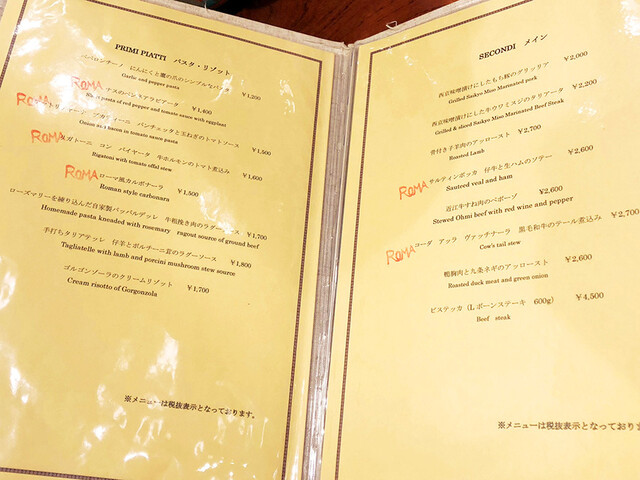 PRIMI PIATTI パスタ・リゾット
ペペロンチーノ にんにくと鷹の爪のシンプルなパスタ ¥1,200
Garlic and pepper pasta
ROMA ナスのペンネアラビアータ ¥1,400
pasta of red pepper and tomato sauce with eggplant
ROMA ブカティーニ パンチェッタと玉ねぎのトマトソース ¥1,500
Onion and bacon in tomato sauce pasta
ROMA リガトーニ コン パイヤータ 牛ホルモンのトマト煮込み ¥1,600
Rigatoni with tomato offal stew
ROMA ローマ風カルボナーラ ¥1,500
Roman style carbonara
ローズマリーを練り込んだ自家製パッパルデッレ 牛粗挽き肉のラグーソース ¥1,700
Homemade pasta kneaded with rosemary ragout source of ground beef
手打ちタリアテッレ 仔羊とポルチーニ茸のラグーソース ¥1,800
Tagliatelle with lamb and porcini mushroom stew source
ゴルゴンゾーラのクリームリゾット ¥1,700
Cream risotto of Gorgonzola
※メニューは税抜表示となっております。
SECONDI メイン
西京味噌漬けにしたもち豚のグリッリア ¥2,000
Grilled Saikyo Miso Marinated pork
西京味噌漬けにした牛ウワミスジのタリアータ ¥2,200
Grilled & sliced Saikyo Miso Marinated Beef Steak
骨付き子羊肉のアッロースト ¥2,700
Roasted Lamb
ROMA サルティンボッカ 仔牛と生ハムのソテー ¥2,600
Sauteed veal and ham
近江牛すね肉のペポーゾ ¥2,600
Stewed Ohmi beef with red wine and pepper
ROMA コーダ アッラ ヴァッチナーラ 黒毛和牛のテール煮込み ¥2,700
Cow's tail stew
鴨胸肉と九条ネギのアッロースト ¥2,600
Roasted duck meat and green onion
ビステッカ（Lボーンステーキ 600g） ¥4,500
Beef steak
※メニューは税抜表示となっておりま